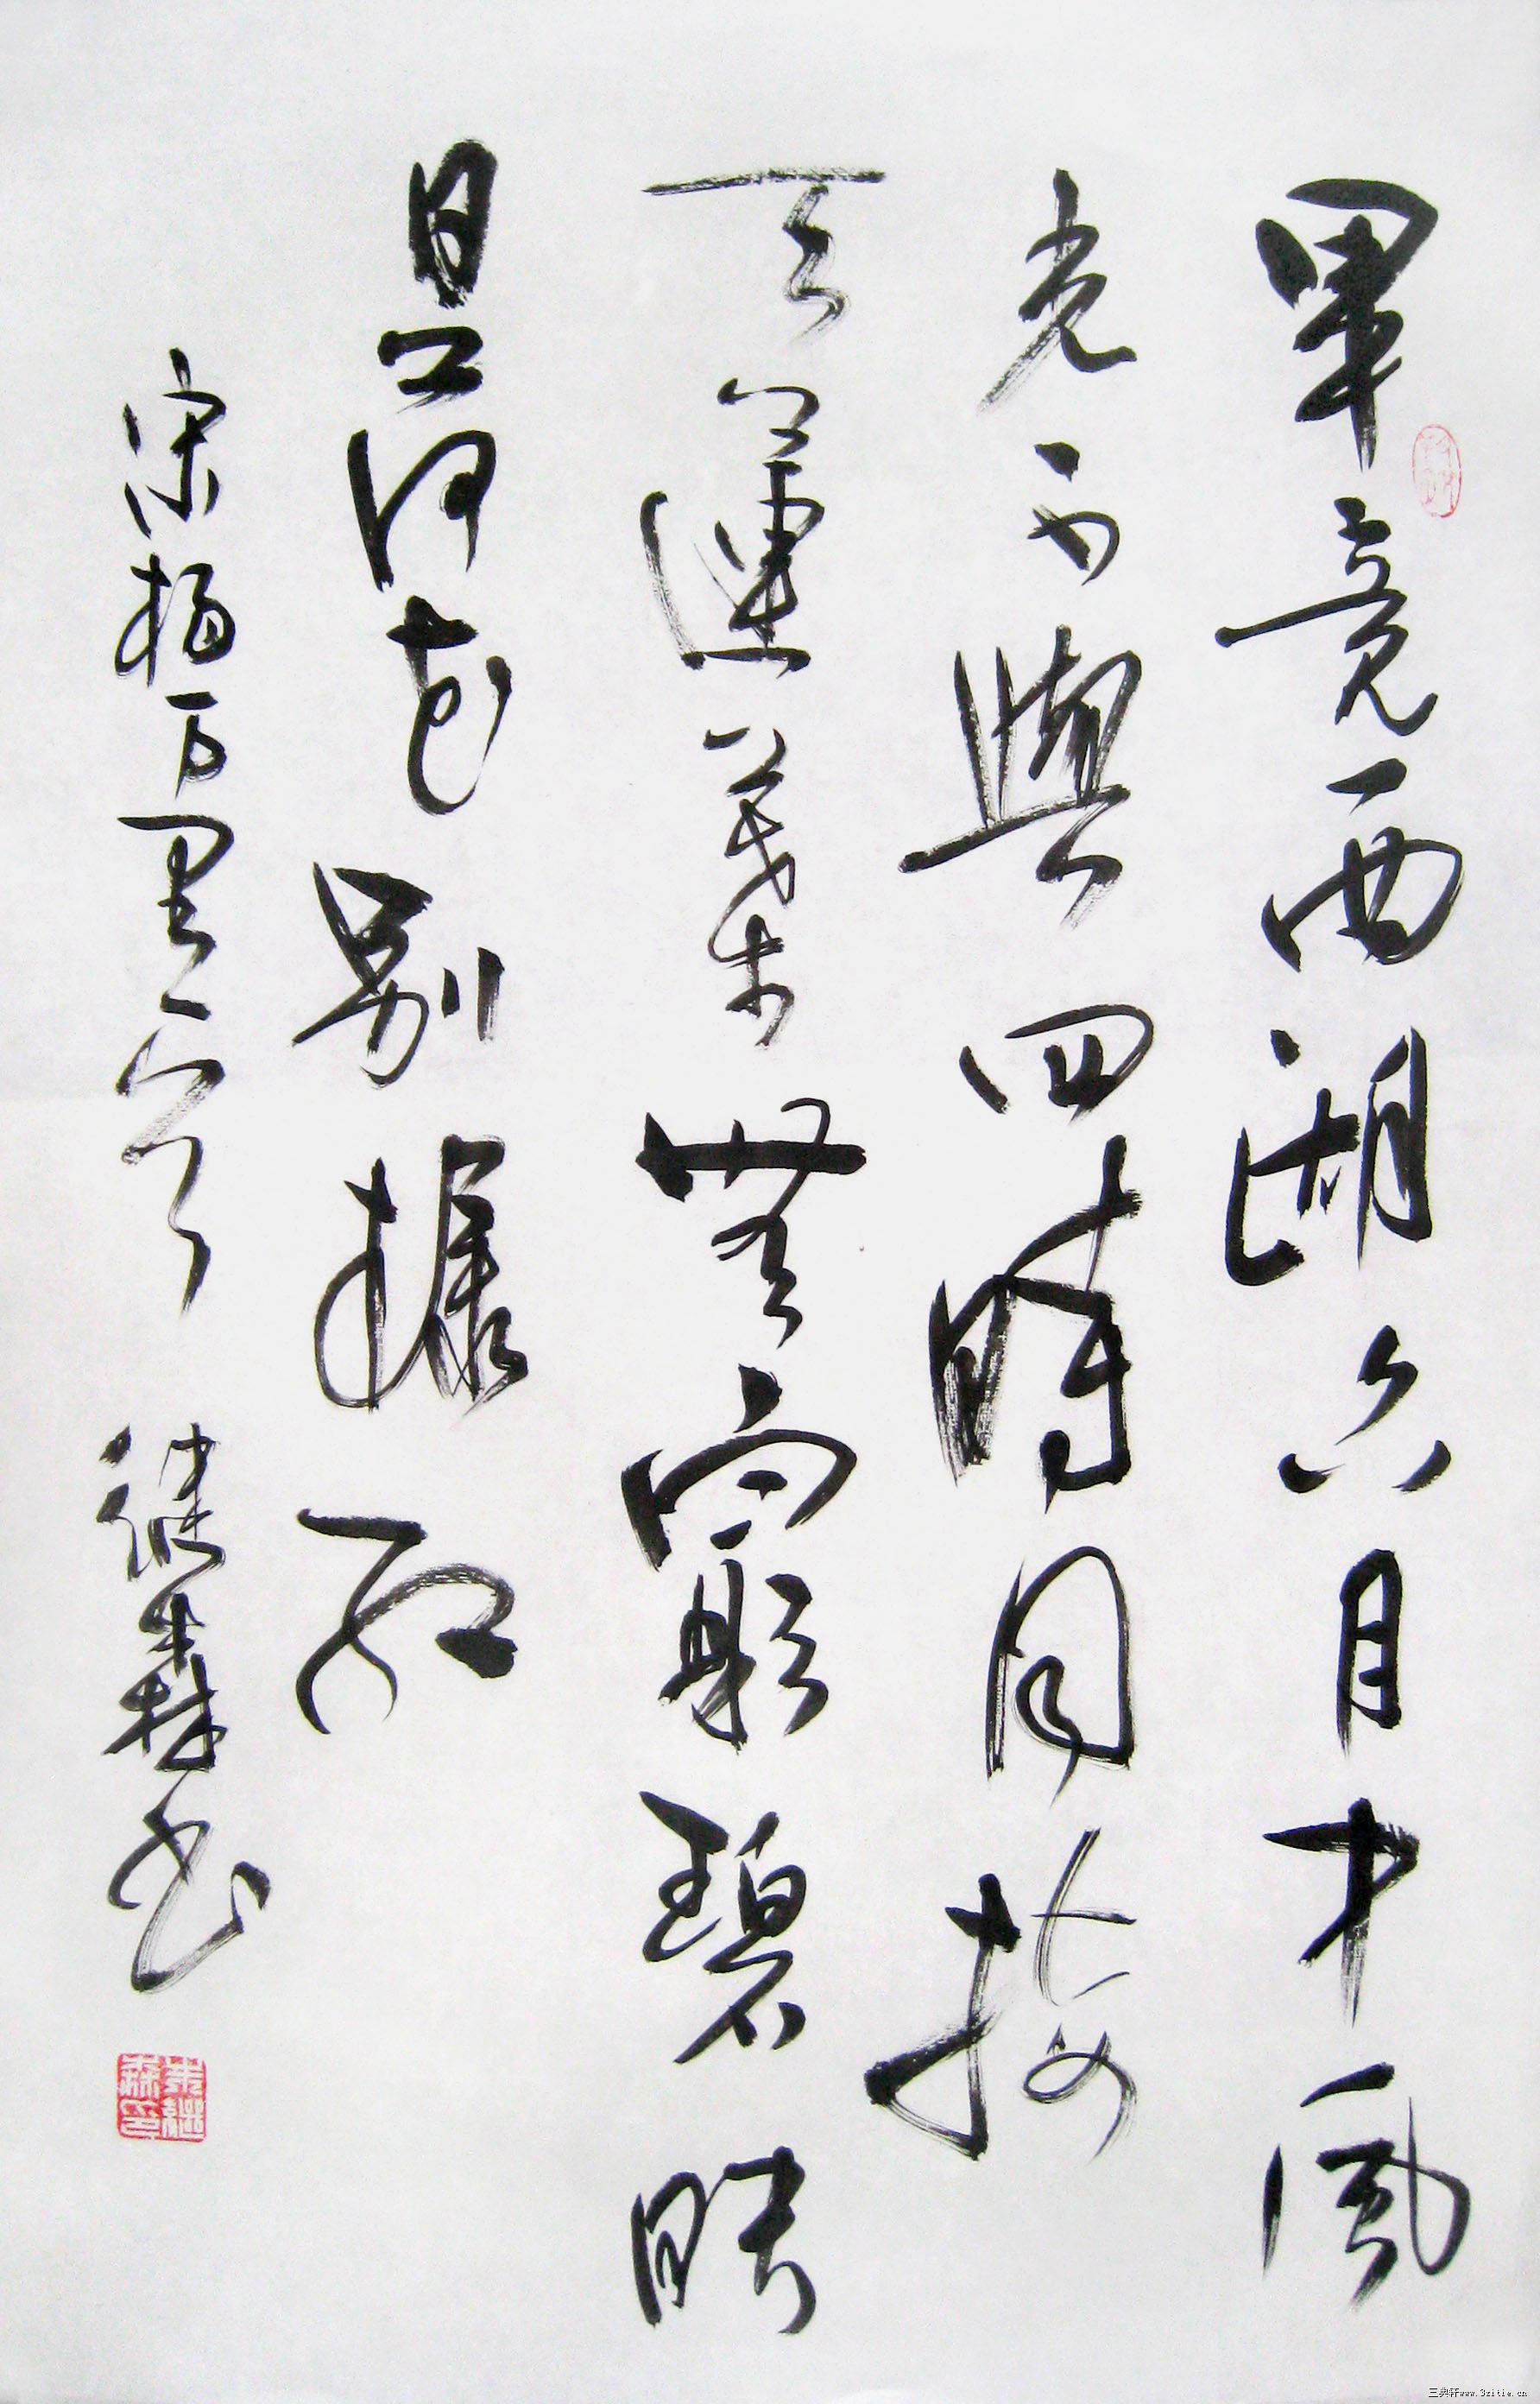 畢竟西湖六月中風
光不與四時同接
天蓮葉無窮碧映
日荷花別樣紅
宋楊万里 継森书
朱繼森印
三典轩www.3zitie.cn